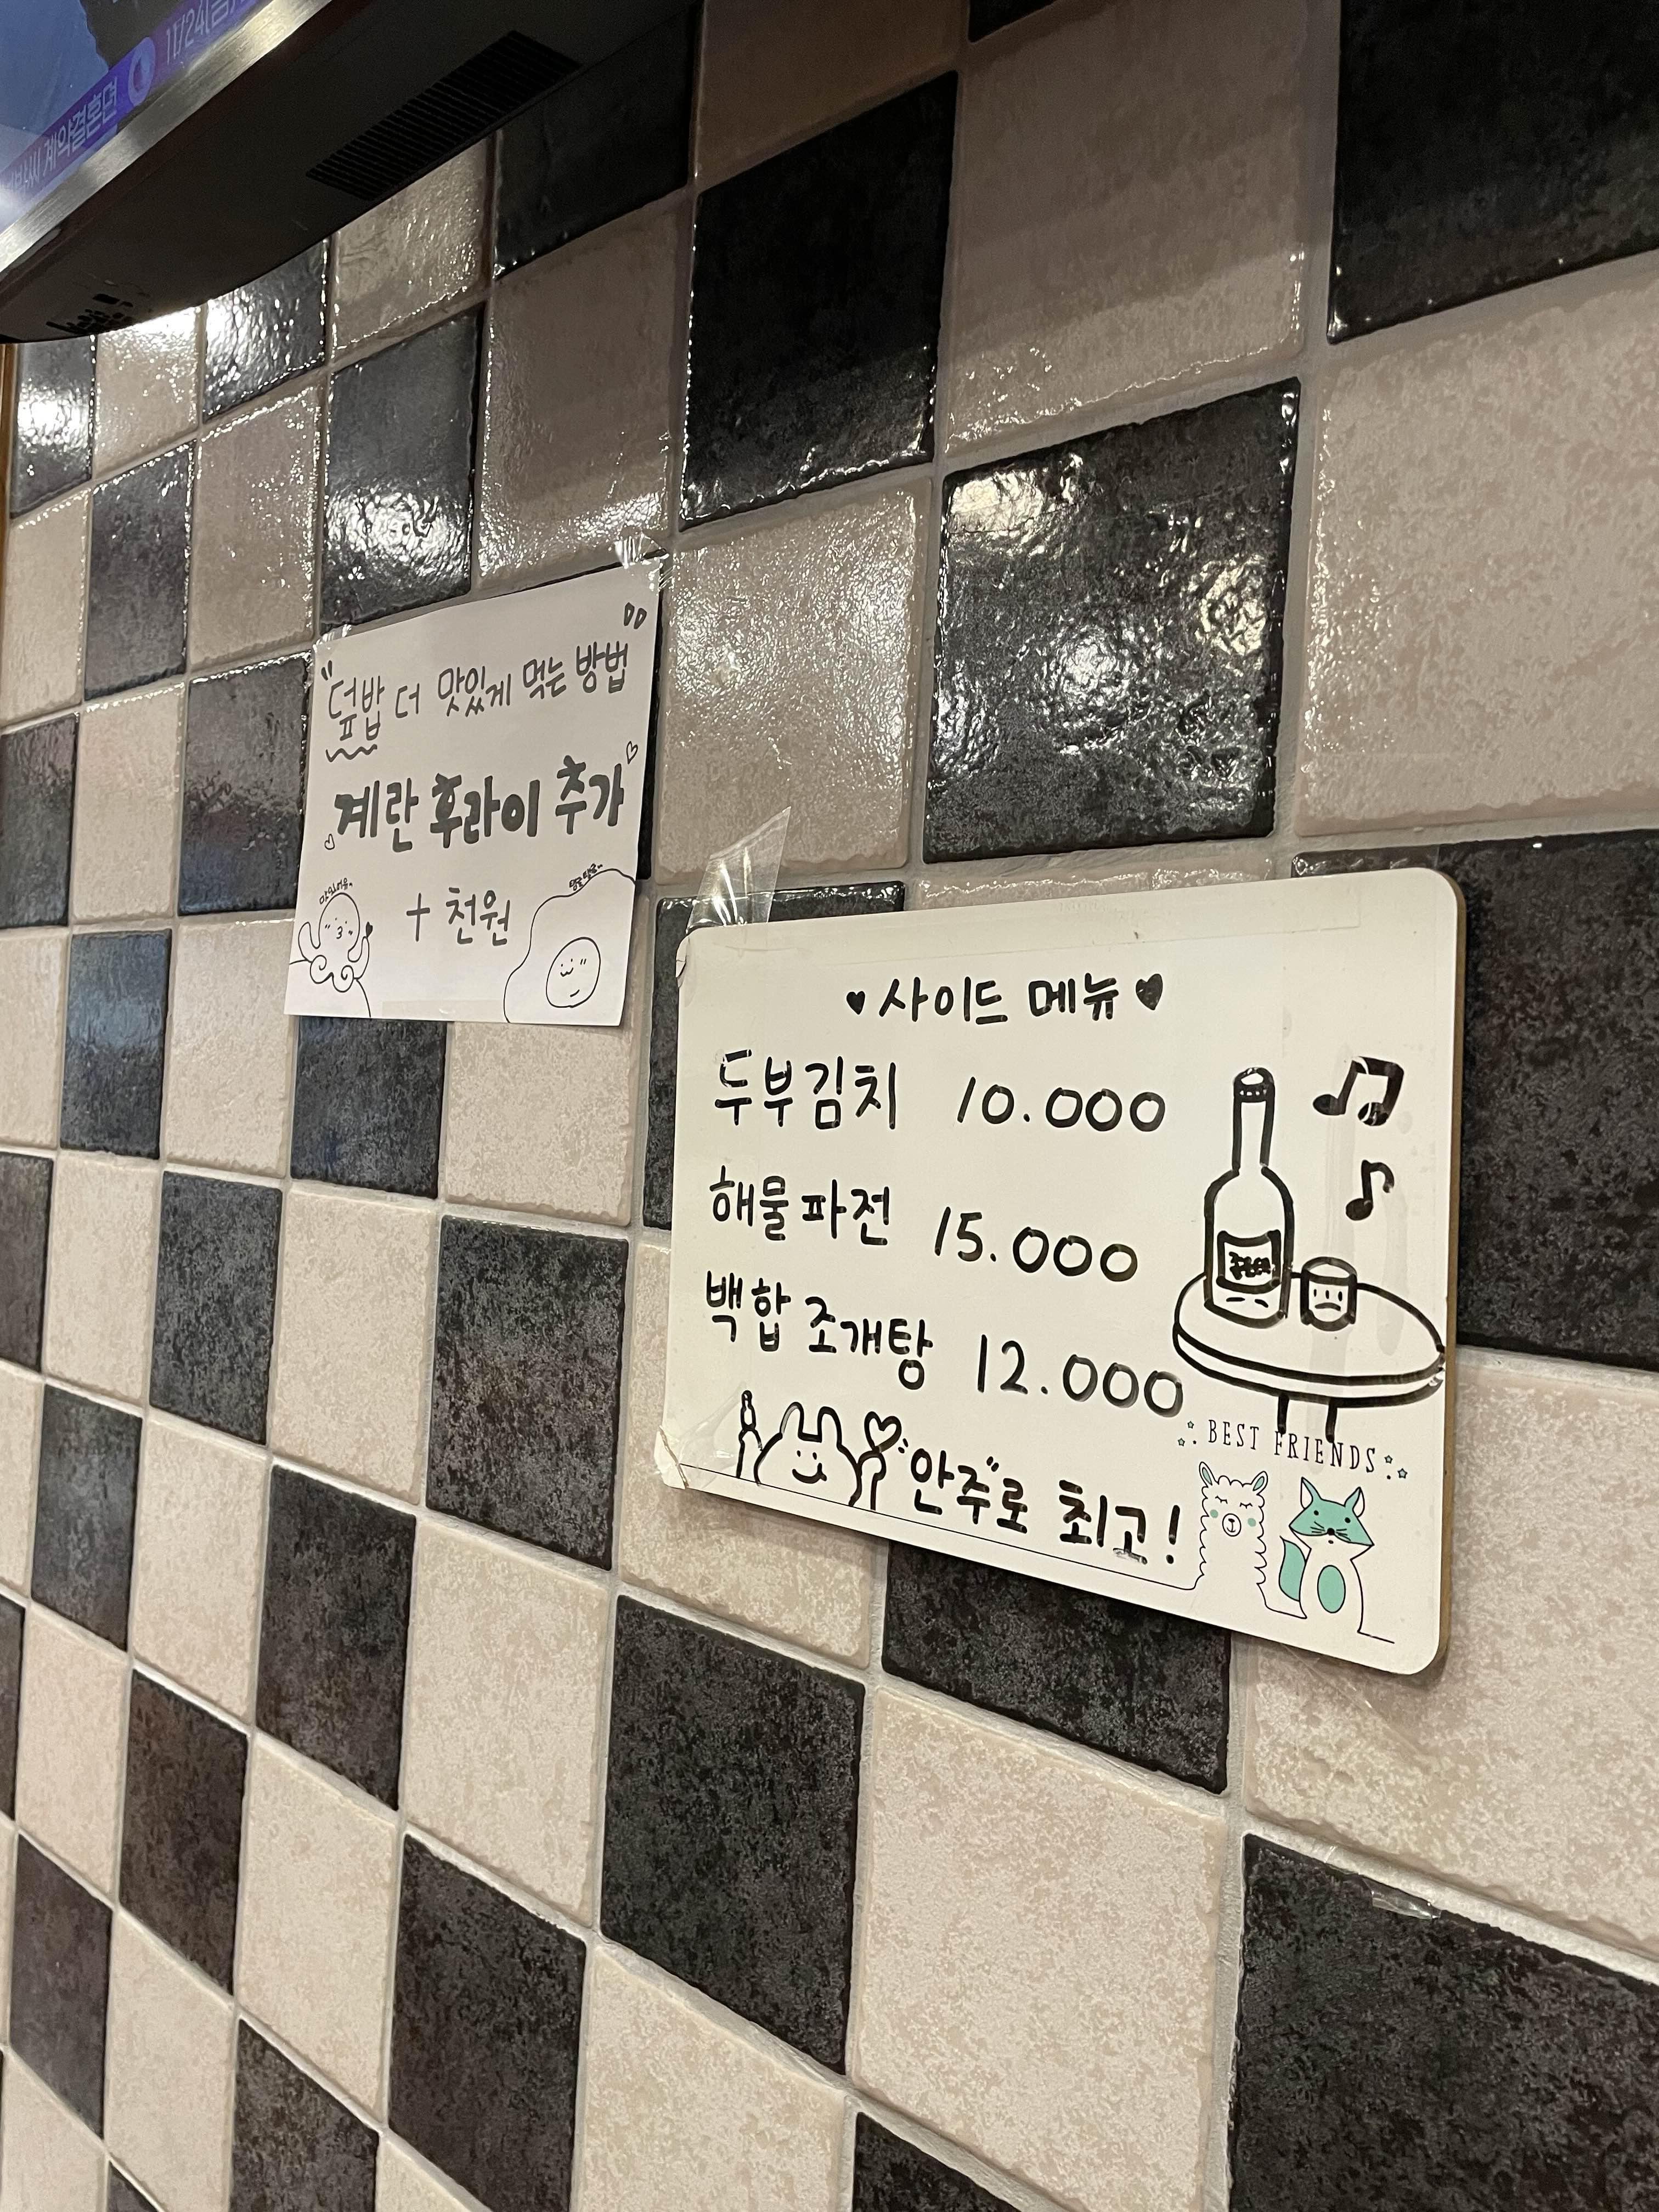 11/24(금)
계약결혼뎐
"덮밥 더 맛있게 먹는 방법"
계란 후라이 추가
+ 천원
맛있어용~
사이드 메뉴
두부김치 10.000
해물파전 15.000
백합 조개탕 12.000
"안주"로 최고!
BEST FRIENDS